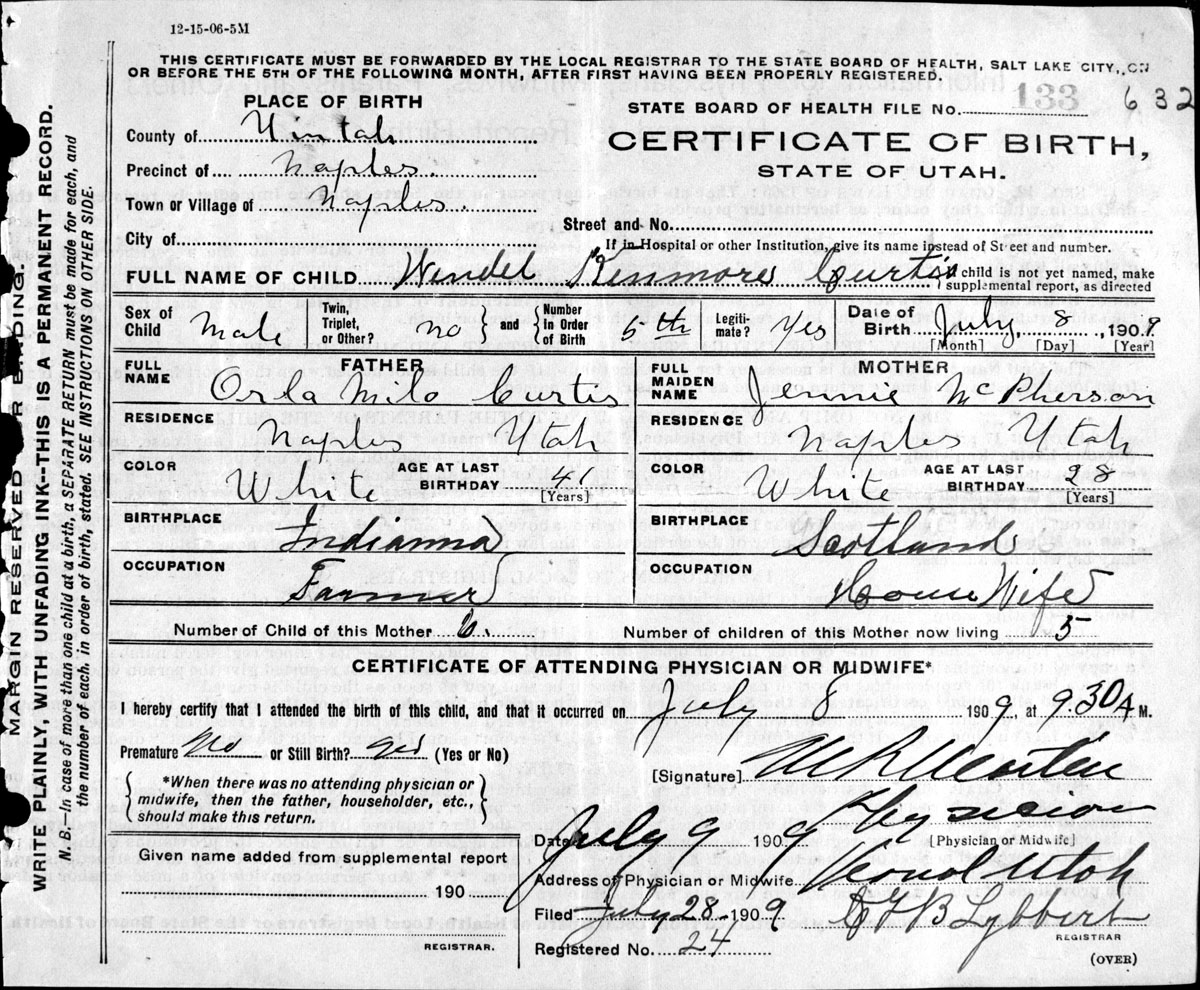 12-15-06-5M
THIS CERTIFICATE MUST BE FORWARDED BY THE LOCAL REGISTRAR TO THE STATE BOARD OF HEALTH, SALT LAKE CITY, ON
OR BEFORE THE 5TH OF THE FOLLOWING MONTH, AFTER FIRST HAVING BEEN PROPERLY REGISTERED.
PLACE OF BIRTH
County of Uintah
Precinct of Naples.
Town or Village of Naples.
City of
STATE BOARD OF HEALTH FILE No. 133 632
CERTIFICATE OF BIRTH,
STATE OF UTAH.
Street and No.
If in Hospital or other Institution, give its name instead of Street and number.
FULL NAME OF CHILD Wendel Kenmore Curtis
If child is not yet named, make
supplemental report, as directed
Sex of Child Male
Twin, Triplet, or Other? no } and { Number in Order of Birth 5th
Legitimate? Yes
Date of Birth July, 8, 1909
[Month] [Day] [Year]
FATHER
FULL NAME Orla Milo Curtis
RESIDENCE Naples Utah
COLOR White AGE AT LAST BIRTHDAY 41
[Years]
BIRTHPLACE Indianna
OCCUPATION Farmer
MOTHER
FULL MAIDEN NAME Jennie McPherson
RESIDENCE Naples Utah
COLOR White AGE AT LAST BIRTHDAY 28
[Years]
BIRTHPLACE Scotland
OCCUPATION House Wife
Number of Child of this Mother 6. Number of children of this Mother now living 5
CERTIFICATE OF ATTENDING PHYSICIAN OR MIDWIFE*
I hereby certify that I attended the birth of this child, and that it occurred on July 8 1909, at 9.30 A. M.
Premature No or Still Birth? (Yes or No)
{ *When there was no attending physician or
midwife, then the father, householder, etc.,
should make this return. }
[Signature]
Physician
[Physician or Midwife]
Date July 9 1909
Address of Physician or Midwife Vernal Utah
Given name added from supplemental report
190
REGISTRAR.
Filed July 28 1909 B Lybbert
REGISTRAR
Registered No. 24
(OVER)
MARGIN RESERVED FOR BINDING.
WRITE PLAINLY, WITH UNFADING INK-THIS IS A PERMANENT RECORD.
N. B.—In case of more than one child at a birth, a SEPARATE RETURN must be made for each, and
the number of each, in order of birth, stated. SEE INSTRUCTIONS ON OTHER SIDE.